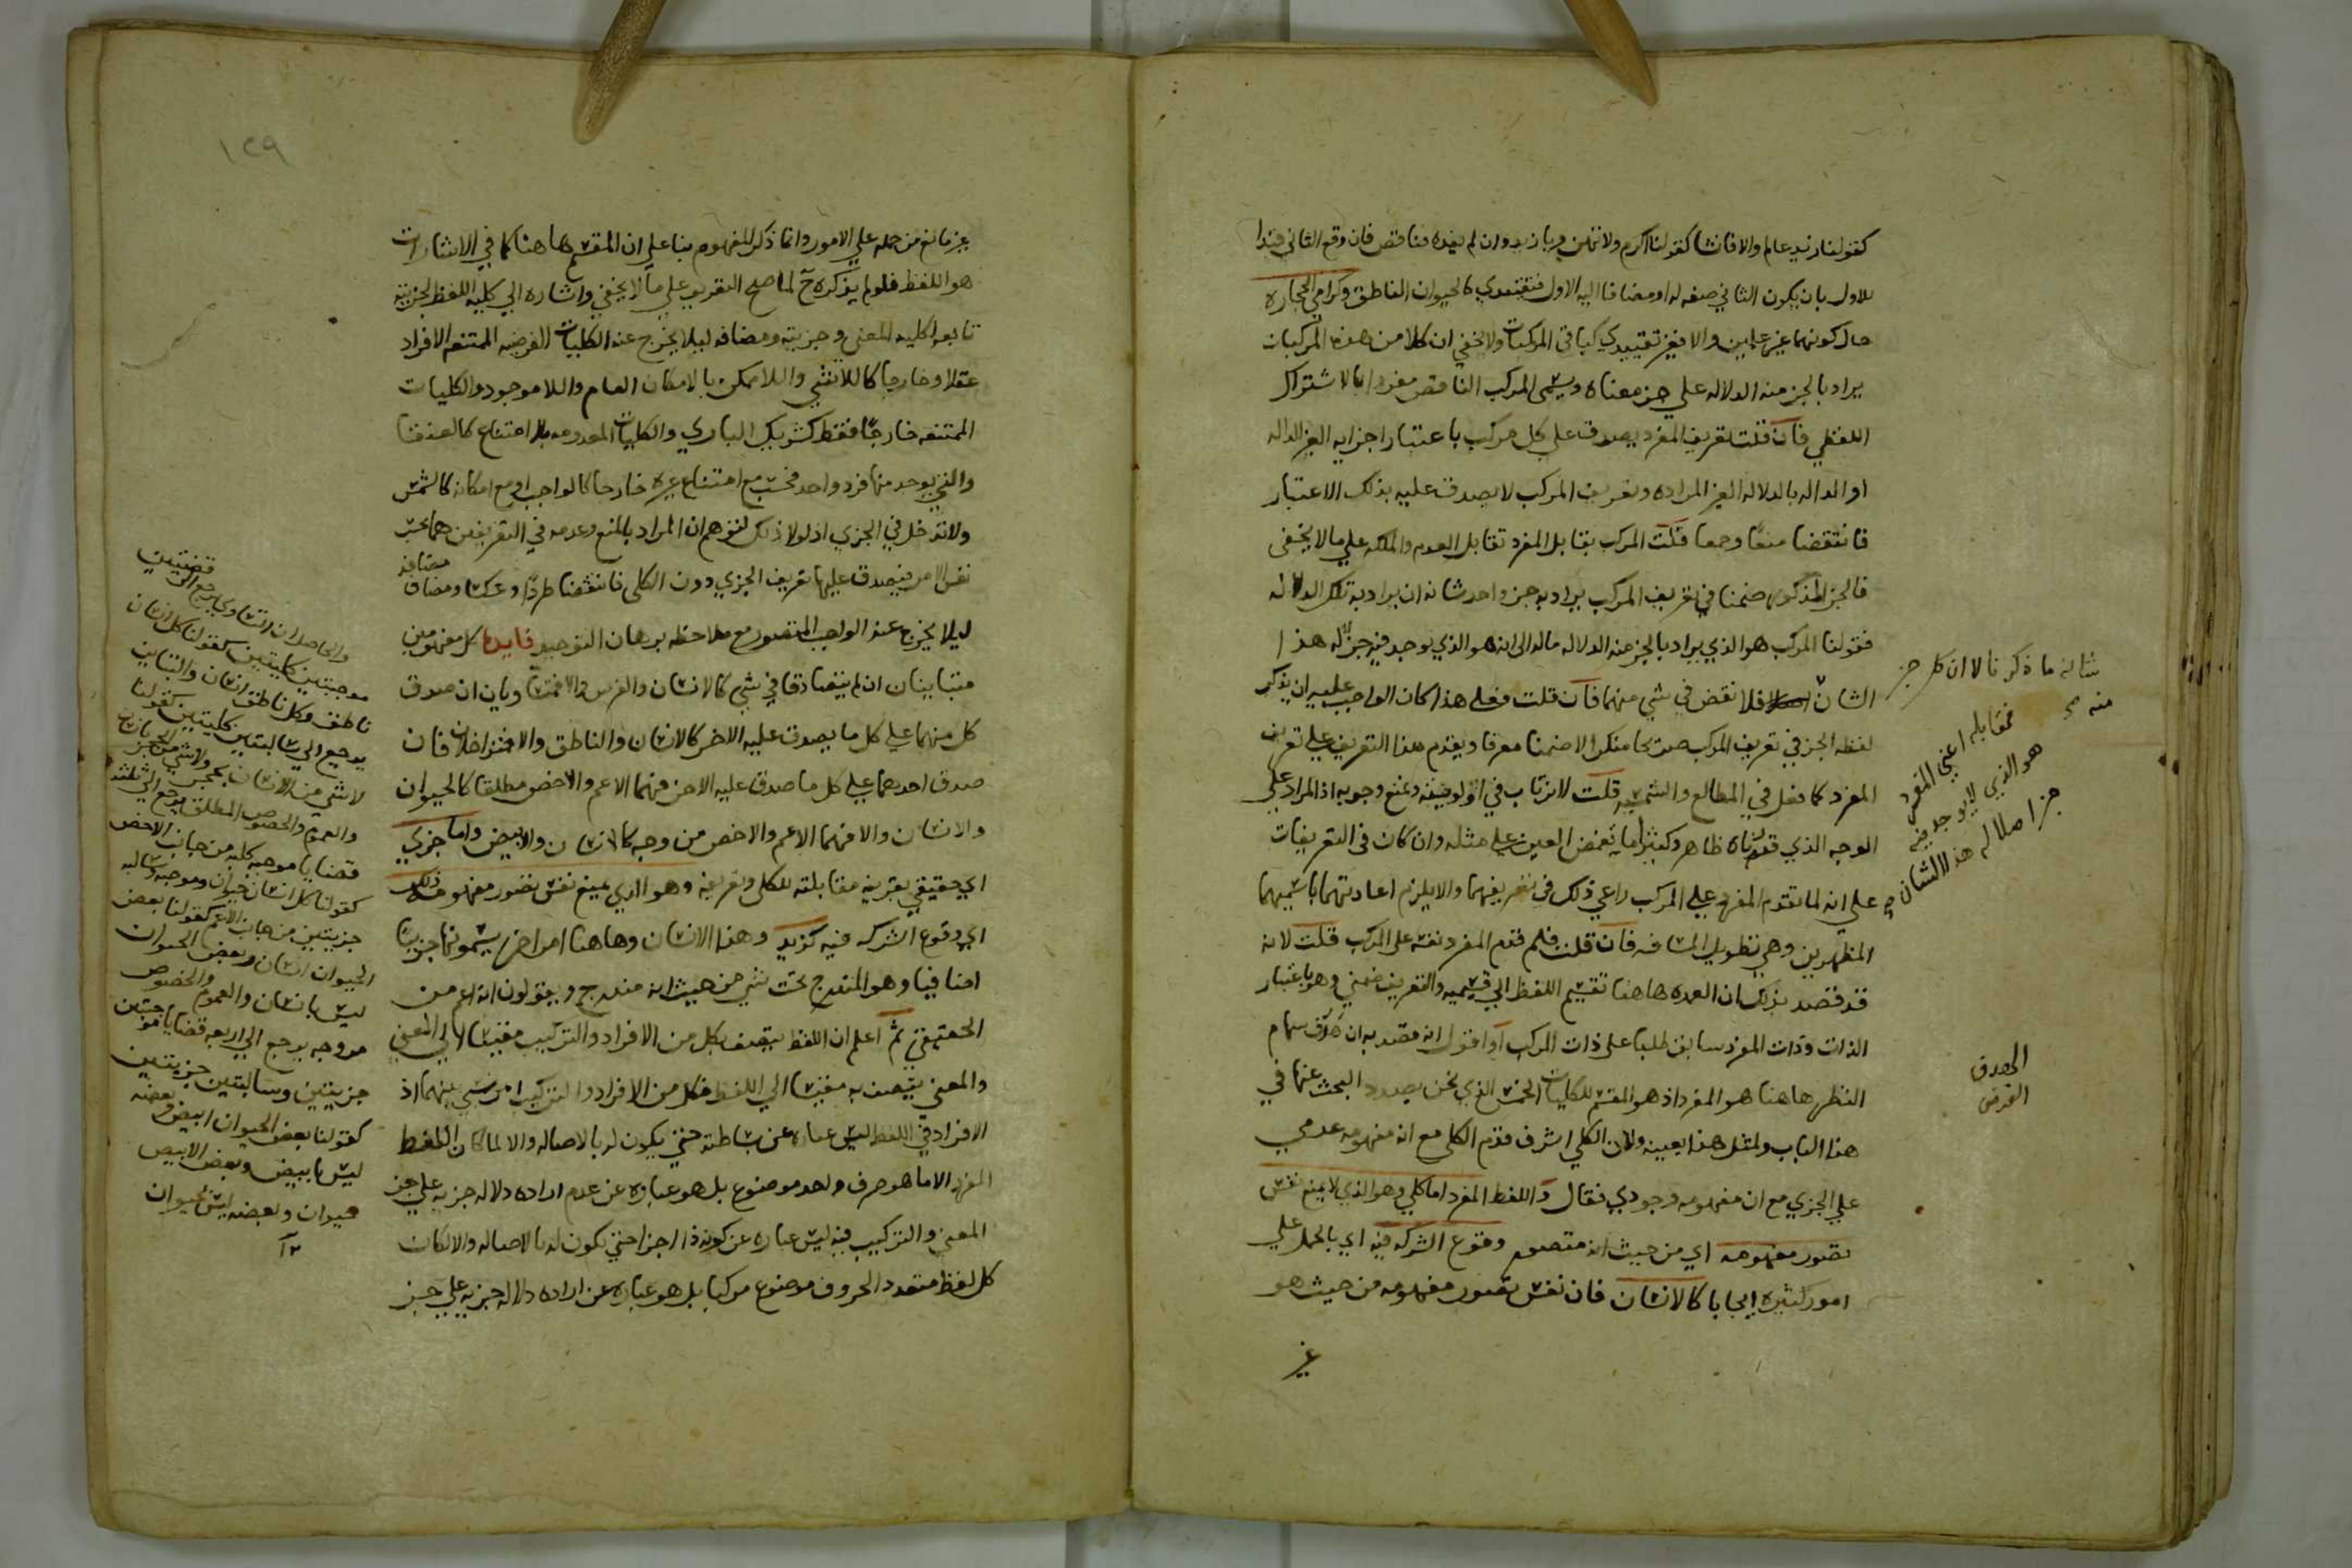 كقولنا زيد عالم والا فانشا كقولنا اكرم ولا تهن وياز يد وان لم يفده فناقص فان وقع الثاني قيدا
للاول بان يكون الثاني صفه له او مضافا اليه الاول فتقييدي كالحيوان الناطق وكرامي الحجاره
حال كونهما غير علمين والا فغير تقييدي كباقي المركبات ولا يخفي ان كلا من هذه المركبات
يراد بالجز منه الدلاله علي جز معناه ويسمى المركب الناقص مفردا بالاشتراك
اللفظي فان قلت تعريف المفرد يصدق علي كل مركب باعتبار اجزايه الغير الداله
او الداله بالدلاله الغير المراده وتعريف المركب لا يصدق عليه بذلك الاعتبار
فانتقضا منعا وجمعا قلت المركب يقابل المفرد تقابل العدم والملكه علي ما لا يخفى
فالجز المذكور ضمنا في تعريف المركب يراد به جز واحد شانه ان يراد به تلك الدلاله
فقولنا المركب هو الذي يراد بالجز منه الدلاله ماله الى انه هو الذي يوجد فيه جز له هذا
الشان فلا نقض في شي منهما فان قلت فعلى هذا كان الواجب عليه ان يذكر
لفظه الجز في تعريف المركب صريحا منكرا لا ضمنا معرفا ويقدم هذا التعريف علي تعريف
المفرد كما فعل في المطالع والشمسيه قلت لا نرتاب في اولويته ونمنع وجوبه اذ المراد علي
الوجه الذي قررناه ظاهر وكثيرا ما تغمض العين علي مثله وان كان في التعريفات
علي انه لما تقدم المفرد علي المركب راعي ذلك في تعريفهما والا يلزم اعادتهما باسميهما
المظهرين وهي تطويل المسافه فان قلت فلم قدم المفرد نفسه على المركب قلت لانه
قد قصد بذلك ان العمده هاهنا تقسيم اللفظ الي قسميه والتعريف ضمني وهو باعتبار
الذات وذات المفرد سابق طبعا على ذات المركب او اقول انه قصد به ان هدف سهام
النظر هاهنا هو المفرد اذ هو المقسم للكليات الخمس الذي نحن بصدد البحث عنها في
هذا الباب ولمثل هذا بعينه ولان الكلي اشرف قدم الكلي مع ان مفهومه عدمي
علي الجزي مع ان مفهومه وجودي فقال واللفظ المفرد اما كلي وهو الذي لا يمنع نفس
تصور مفهومه اي من حيث انه متصور وقوع الشركه فيه اي بالحمل علي
امور كثيره ايجابا كالانسان فان نفس تصور مفهومه من حيث هو
غير
شانه ما ذكرنا لا ان كل جز
منه
فمقابله اعني المفرد
هو الذي لا يوجد فيه
جز اصلا له هذا الشان
الهدف
الغرض
١٢٩
غير مانع من حمله علي الامور وانما ذكر المفهوم بنا علي ان المقسم هاهنا كما في الاشارات
هو اللفظ فلو لم يذكره ح لما صح التعريف علي ما لا يخفي واشاره الي كليه اللفظ الجزيته
تابعه لكليه المعنى وجزيته ومضافه ليلا يخرج عنه الكليات الفرضيه الممتنعه الافراد
عقلا وخارجا كاللاشي واللاممكن بالامكان العام واللاموجود والكليات
الممتنعه خارجا فقط كشريك الباري والكليات المعدومه بلا امتناع كالعنقا
والتي يوجد منها فرد واحد فحسب مع امتناع غيره خارجا كالواجب او مع امكانه كالشمس
ولا تدخل في الجزي اذ لولا ذلك لتوهم ان المراد بالمنع وعدمه في التعريفين هما بحسب
نفس الامر فيصدق عليها تعريف الجزي دون الكلي فانتقضا طردا وعكسا ومضاف
مضافه
ليلا يخرج عنه الواجب المتصور مع ملاحظه برهان التوحيد فايده كل مفهومين
متباينان ان لم يتصادقا في شي كالانسان والفرس والا فمتساويان ان صدق
كل منهما علي كل ما يصدق عليه الاخر كالانسان والناطق والا فمتداخلان فان
صدق احدهما علي كل ما صدق عليه الاخر فهما الاعم والاخص مطلقا كالحيوان
والانسان والا فهما الاعم والاخص من وجه كالانسان والابيض واما جزي
اي حقيقي بقرينه مقابلته للكلي وتعريفه وهو الذي يمنع نفس تصور مفهومه ذلك
اي وقوع الشركه فيه كزيد وهذا الانسان وهاهنا امر اخر يسمونه جزييا
اضافيا وهو المندرج تحت شي من حيث انه مندرج ويقولون انه اعم من
الحقيقي ثم اعلم ان اللفظ يتصف بكل من الافراد والتركيب مقيسا الي المعني
والمعني يتصف به مقيسا الي اللفظ فكل من الافراد والتركيب امر نسبي بينهما اذ
الافراد في اللفظ ليس عباره عن بساطته حتي يكون له بالاصاله والا لما كان اللفظ
المفرد الا ما هو حرف واحد موضوع بل هو عباره عن عدم اراده دلاله جزيه علي جز
المعني والتركيب فيه ليس عباره عن كونه ذا اجزا حتي يكون له بالاصاله والا لكان
كل لفظ متعدد الحروف موضوع مركبا بل هو عباره عن اراده دلاله جزيه علي جز
قضيتين
والحاصل ان التساوي يرجع الي
موجبتين كليتين كقولنا كل انسان
ناطق وكل ناطق انسان والتباين
يرجع الي سالبتين كليتين كقولنا
لا شي من الانسان بحجر ولا شي من الحجر بانسان
والعموم والخصوص المطلق يرجع الي ثلث
قضايا موجبه كليه من جانب الاخص
كقولنا كل انسان حيوان وموجبه وسالبه
جزيتين من جانب الاعم كقولنا بعض
الحيوان انسان وبعض الحيوان
ليس بانسان والعموم والخصوص
من وجه يرجع الي اربعه قضايا موجبتين
جزيتين وسالبتين جزيتين
كقولنا بعض الحيوان ابيض وبعضه
ليس بابيض وبعض الابيض
حيوان وبعضه ليس بحيوان